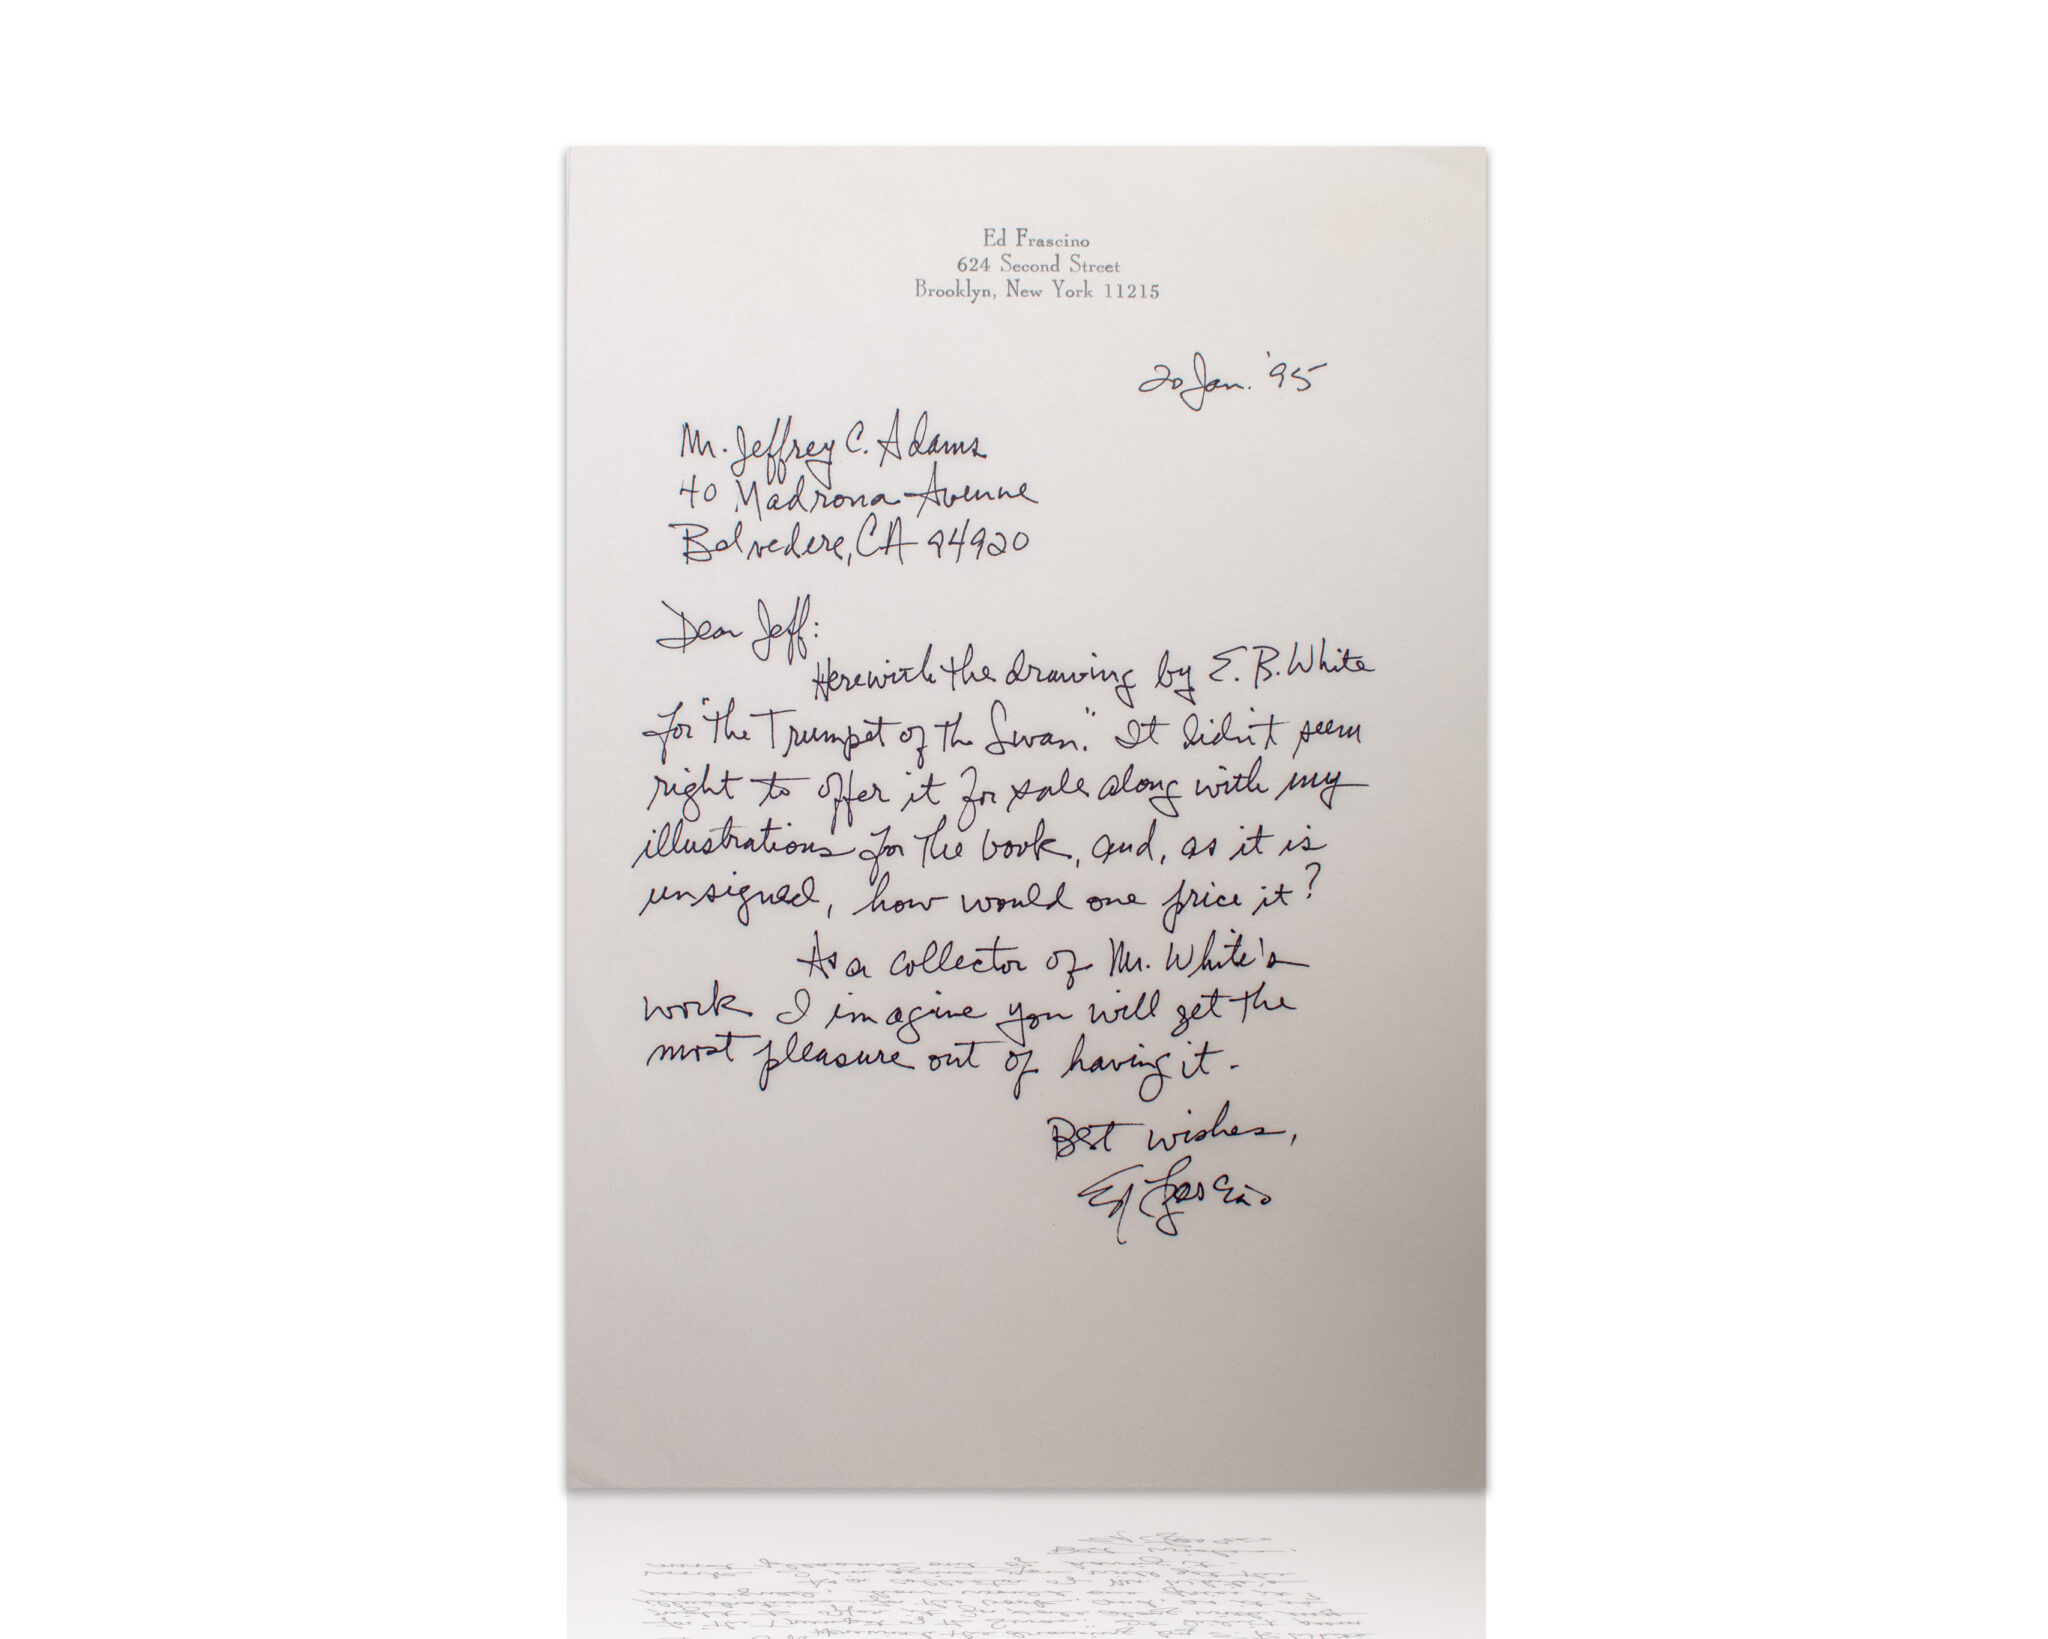 Ed Frascino
624 Second Street
Brooklyn, New York 11215
20 Jan. '95
Mr. Jeffrey C. Adams
40 Madrona Avenue
Belvedere, CA 94920
Dear Jeff:
Herewith the drawing by E. B. White
for "The Trumpet of the Swan." It didn't seem
right to offer it for sale along with my
illustrations for the book, and, as it is
unsigned, how would one price it?
As a collector of Mr. White's
work I imagine you will get the
most pleasure out of having it.
Best wishes,
Ed Frascino